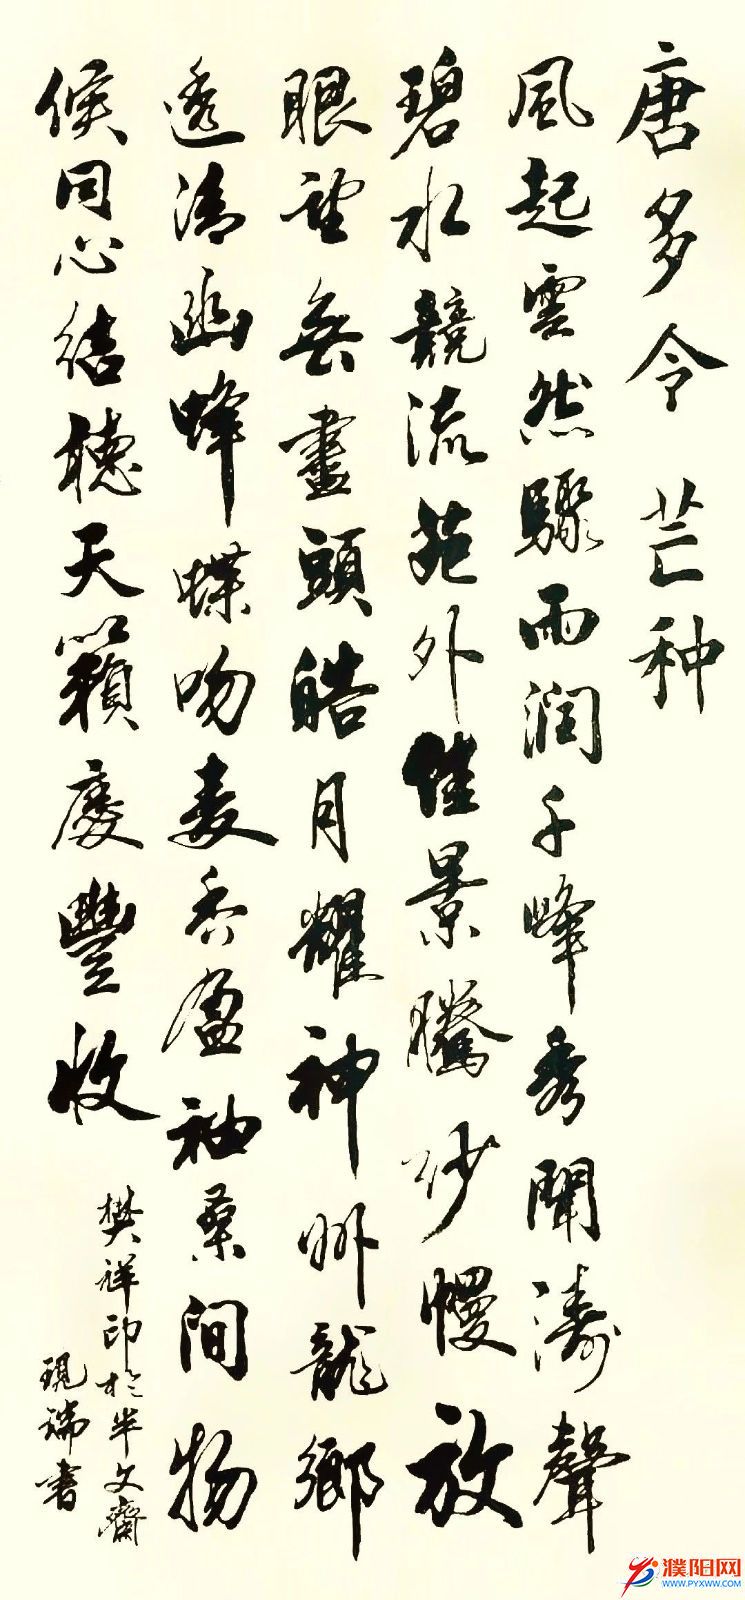 唐多令 芒种
風起雲然驟雨润千峰秀聞濤聲
碧水競流苑外佳景騰纱幔放
眼望無盡頭皓月耀神州龍鄉
透清幽蜂蝶吻麦香盈袖桑间物
候同心结聽天籟慶豐收
樊祥印於半文齋
現瑞書
濮阳网
WWW.PYXWW.COM